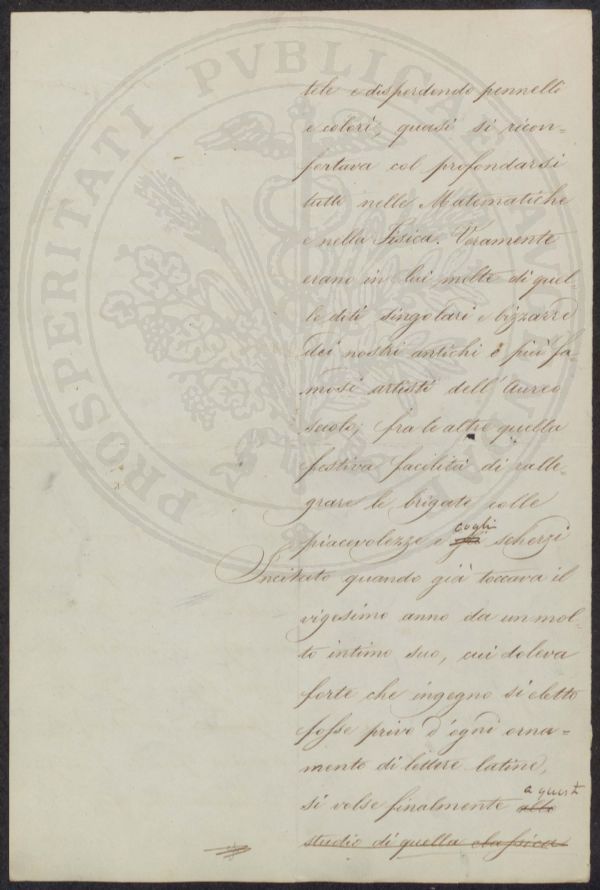 PROSPERITATI PVBLICAE
tele e disperdendo pennelli
e colori, quasi si ricon=
fortava col profondarsi
tutto nelle Matematiche
e nella Fisica. Veramente
erano in lui molte di quel-
le doti singolari e bizzarre
dei nostri antichi e più fa-
mosi artisti dell'Aureo
secolo; fra le altre quella
festiva facilità di ralle-
grare le brigate colle
piacevolezze e cogli scherzi
Incitato quando già toccava il
vigesimo anno da un mol-
to intimo suo, cui doleva
forte che ingegno sì eletto
fosse privo d'ogni orna=
mento di lettere latine,
si volse finalmente allo a questo
studio di quella classica